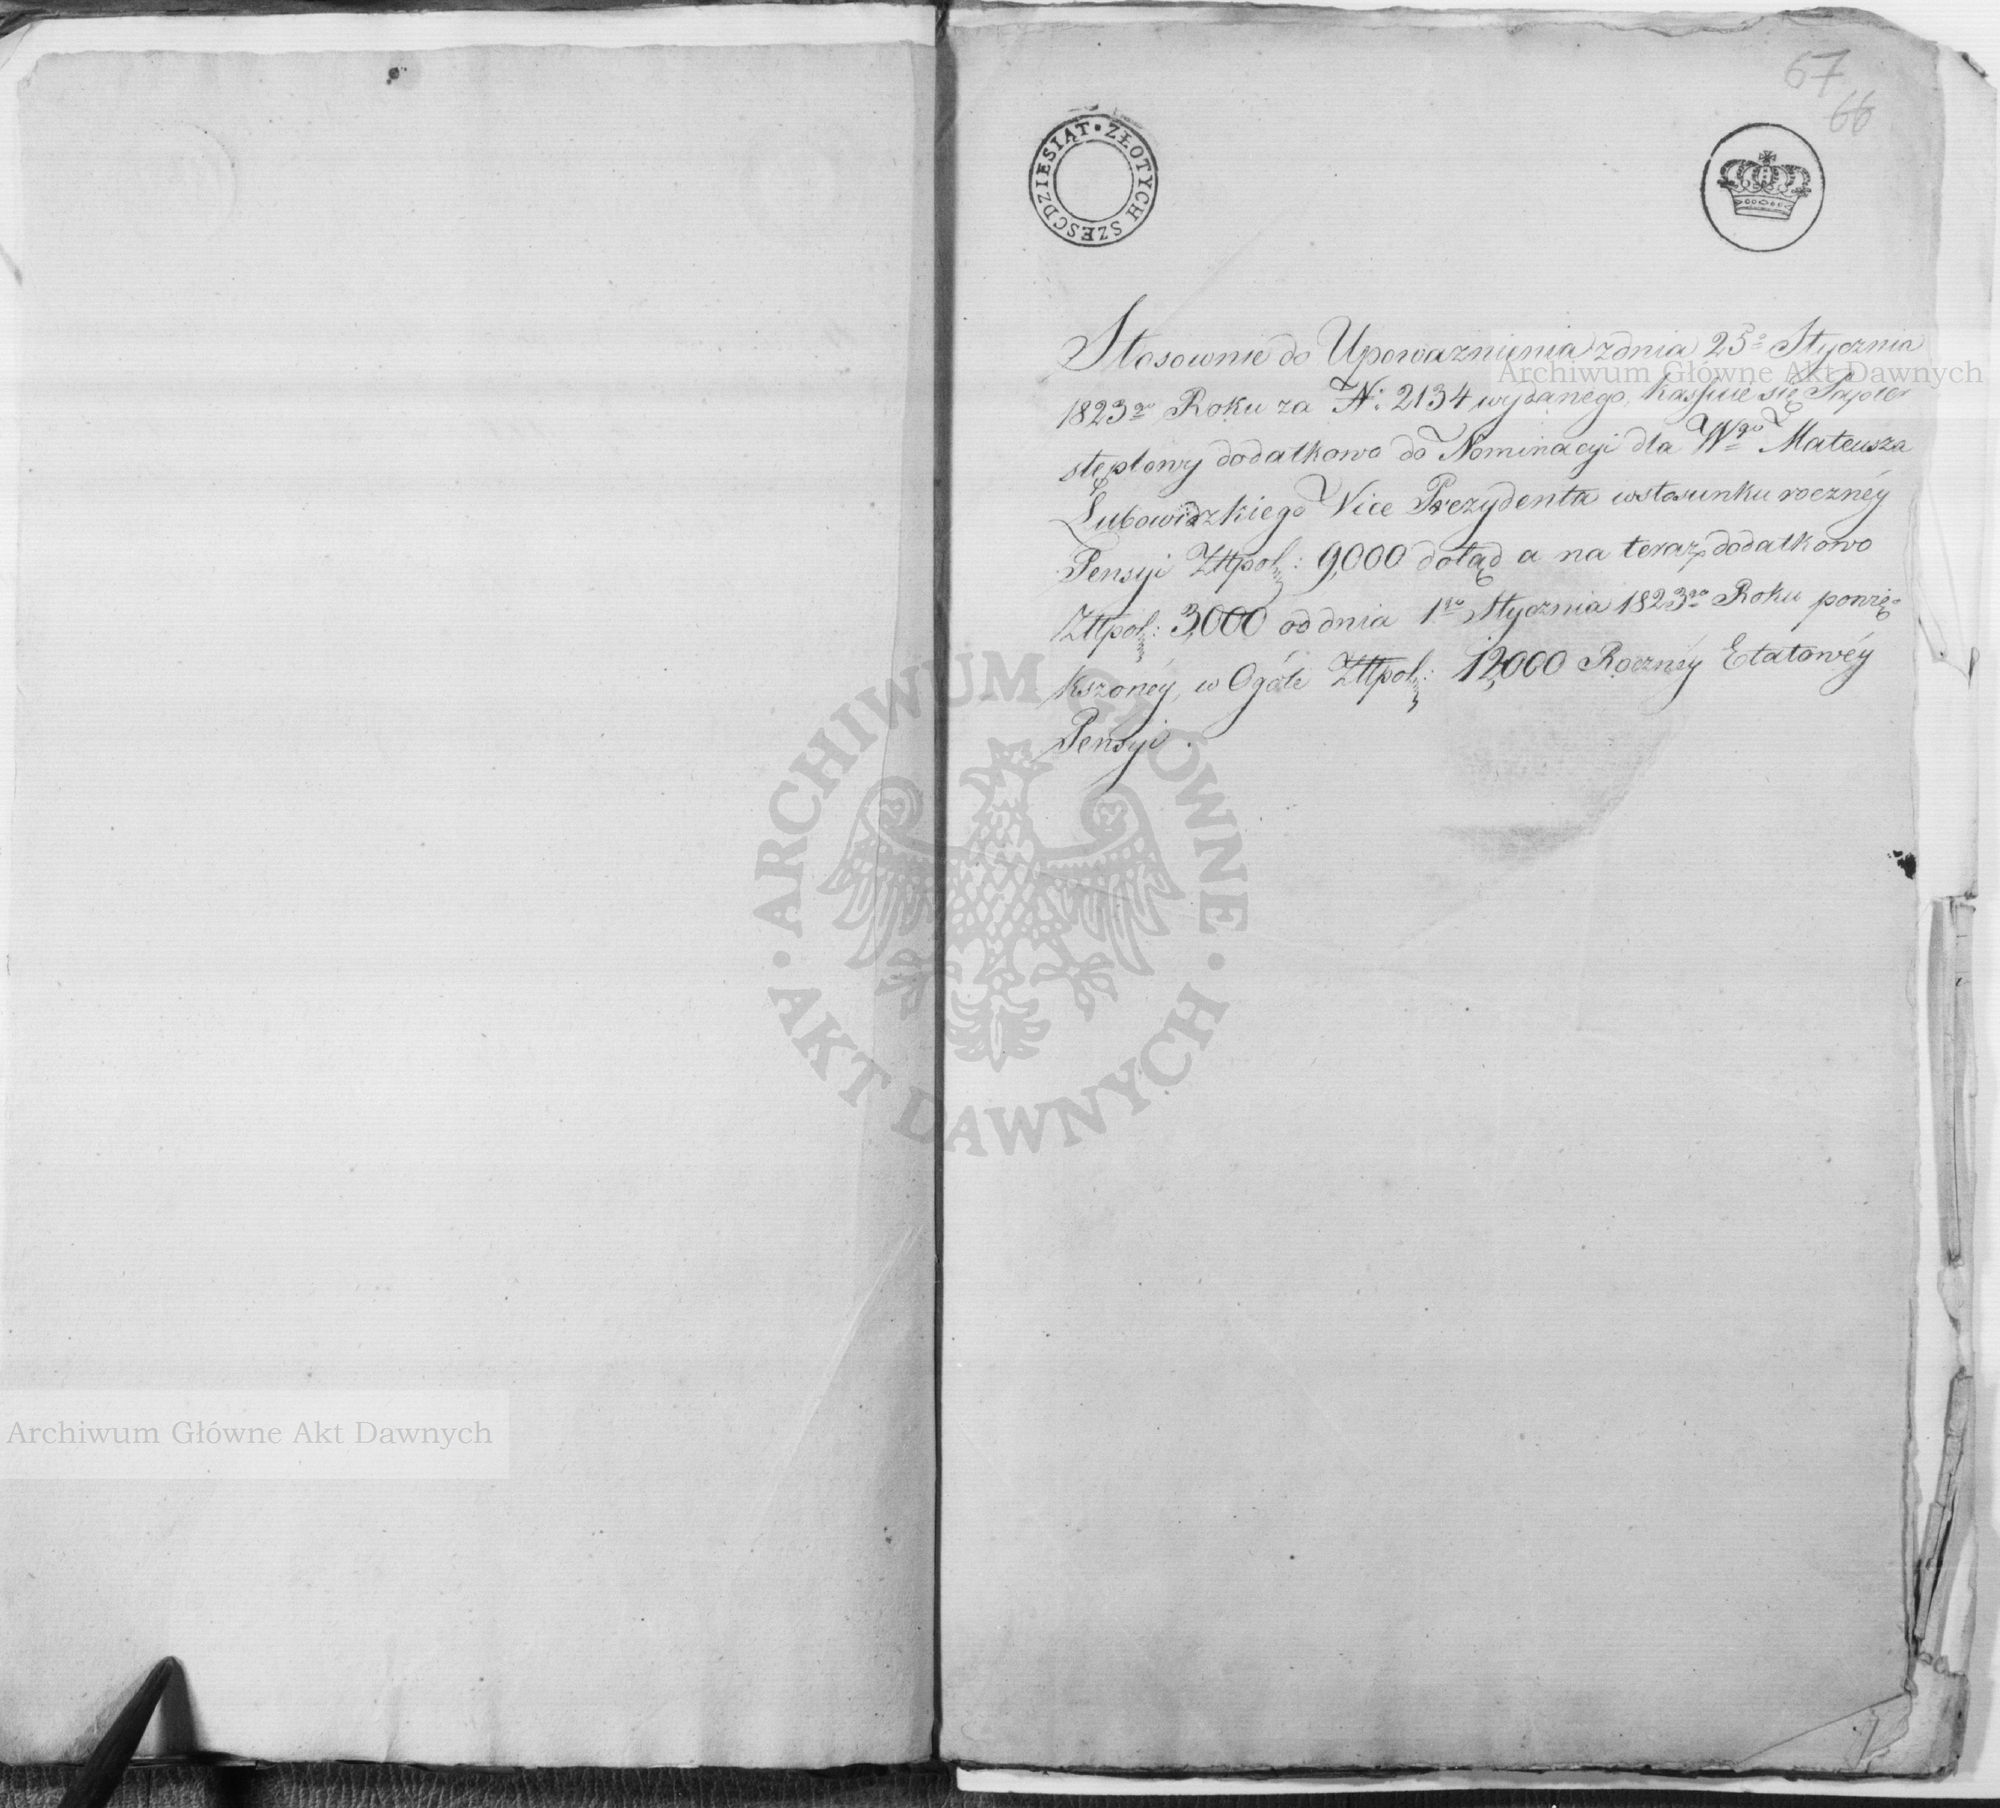 67
66
SZEŚĆDZIESIĄT • ZŁOTYCH
Stosownie do Upoważnienia z dnia 25º Stycznia
1823go Roku za N: 2134 wydanego, kassuie się Papier
stęplowy dodatkowo do Nominacyi dla Wgo Mateusza
Lubowidzkiego Vice Prezydenta w stosunku rocznéy
Pensyi Złtpol: 9,000 dotąd a na teraz dodatkowo
Złtpol: 3,000 od dnia 1go Stycznia 1823go Roku powię-
kszonéy, w Ogóle Złtpol: 12,000 Rocznéy Etatowéy
Pensyi.
Archiwum Główne Akt Dawnych
ARCHIWUM GŁÓWNE • AKT DAWNYCH •
Archiwum Główne Akt Dawnych